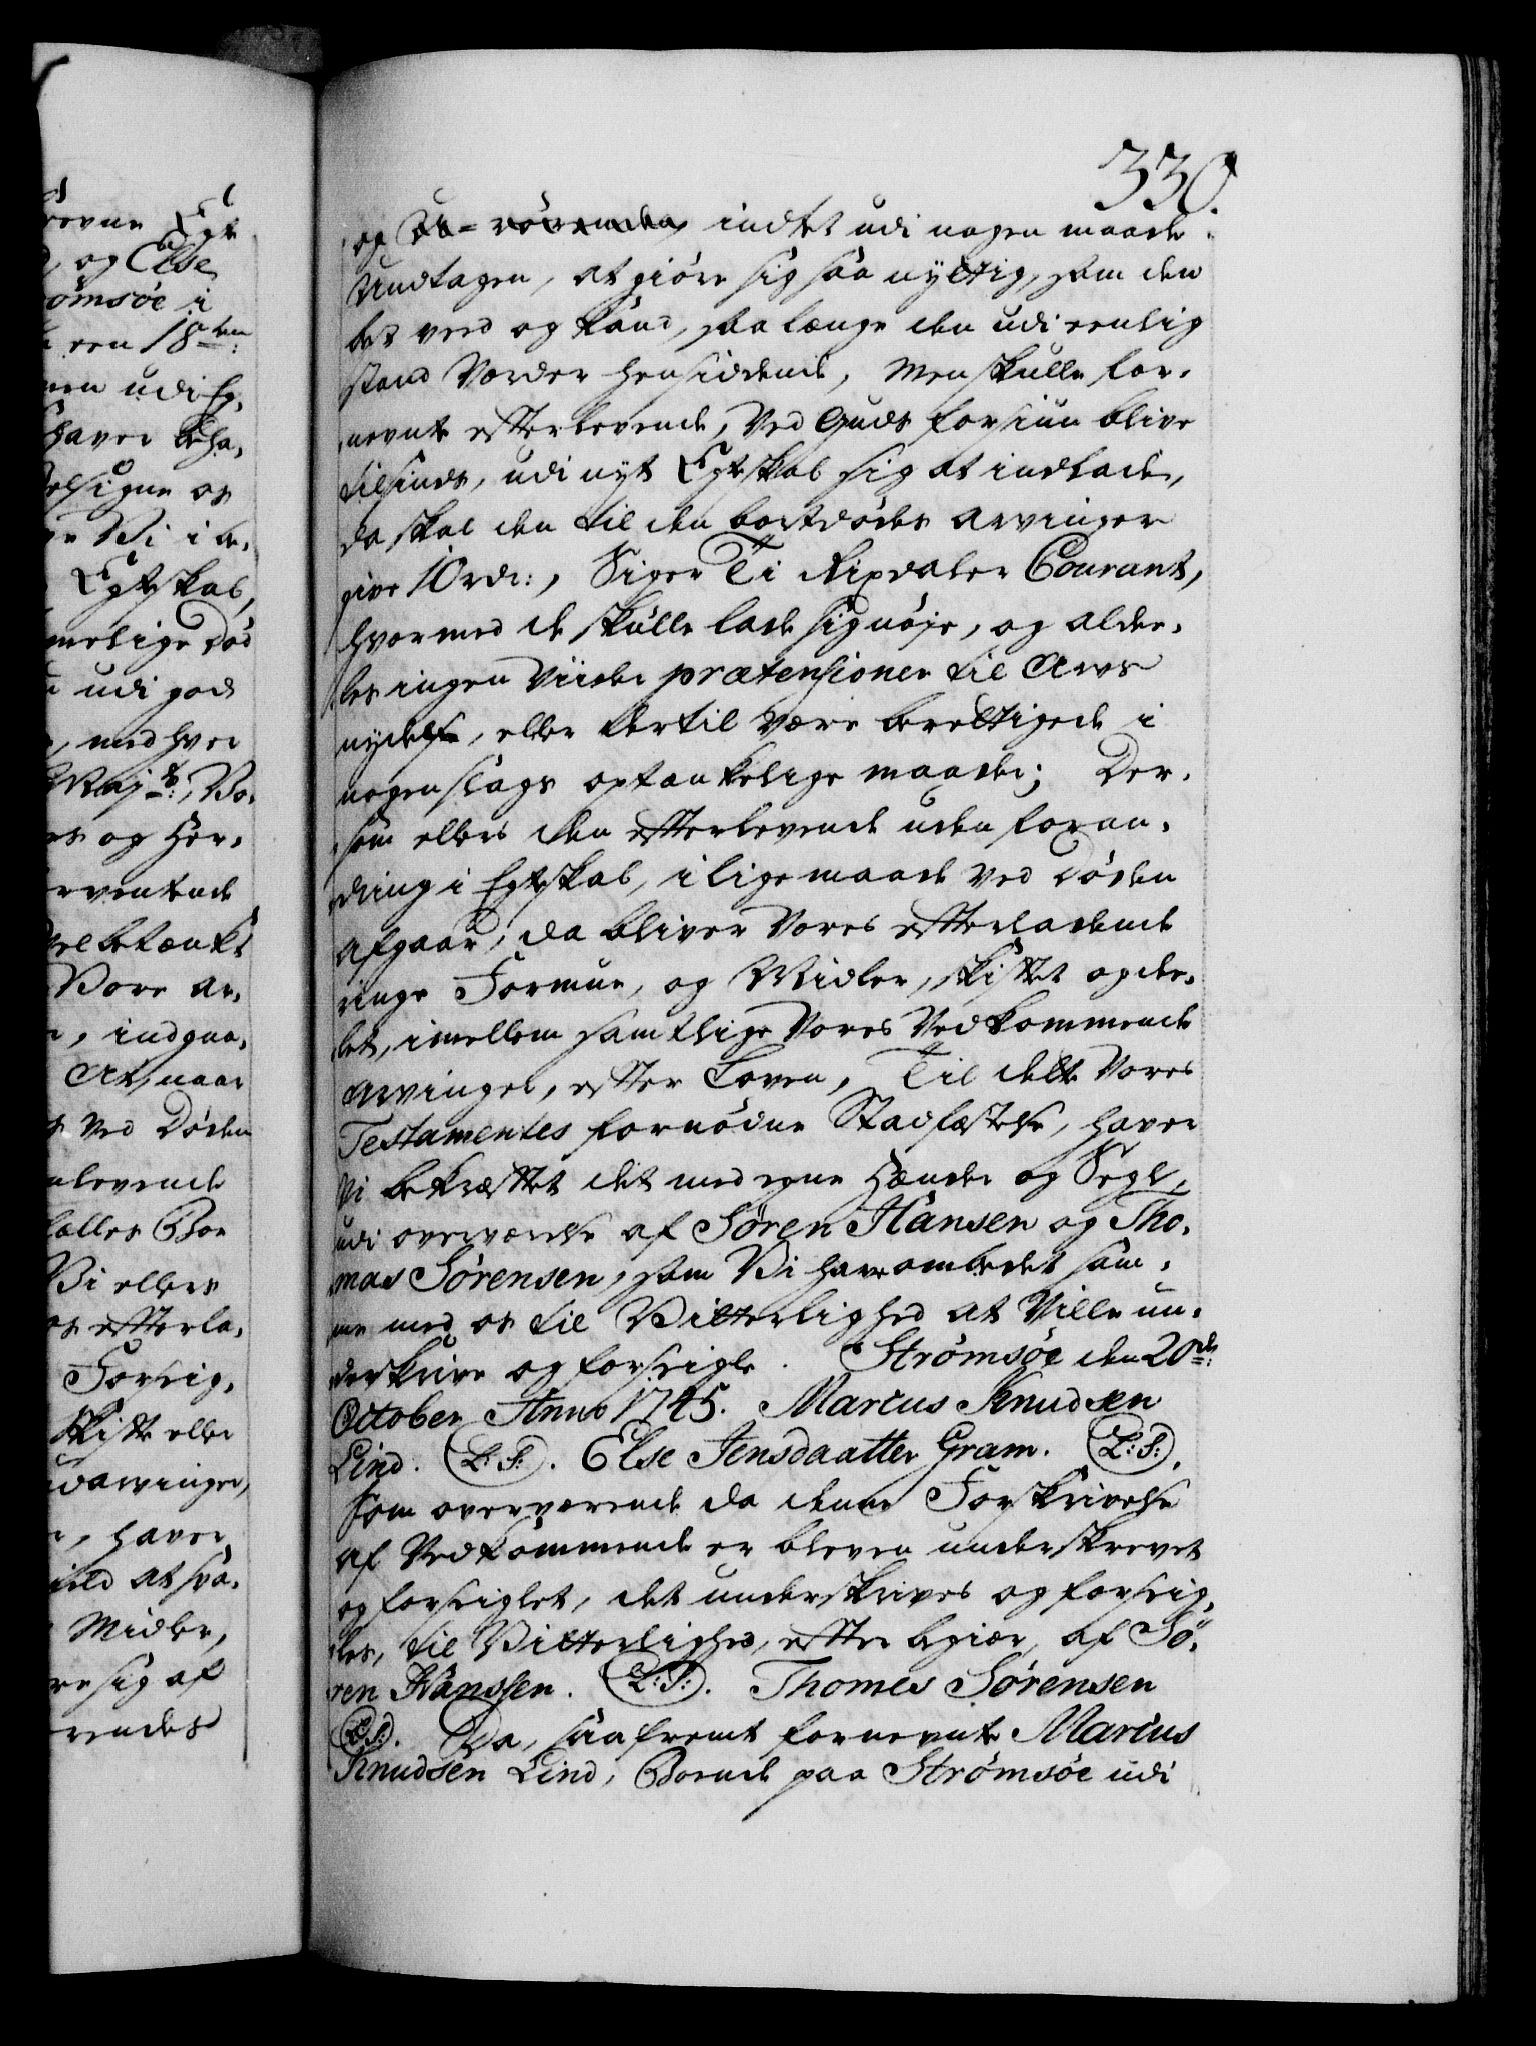 330.
og Ub- rörendes indtet udi nogen maade
Undtagen, at giöre sig saa nyttig, som den
best veed og kand, saa længe den udi eenlig
stand Vorder hensiddende, Men skulle for-
nevnte efterlevende, Ved Guds forsiun blive
tilsinds, udi nyt Egteskab sig at indlade,
da skal den til den bortdödes arvinger
give 10 rdr:, Siger Ti Rixdaler Courant,
hvormed de skulle lade sig nöje, og alde-
les ingen Viidre prætensioner til Arvs
nydelse, eller dertil være berettigede i
nogenslags optænkelige maader; Der-
som ellers den efterlevende uden foran-
dring i Egteskab, i lige maade ved Döden
afgaar, da bliver Vores efterladende
ringe Formue, og Midler, skiftet og de-
let, imellem samtlige Vores Vedkommende
arvinger, efter Loven, Til dette Vores
Testamentes fornödne Stadfæstelse, haver
Vi bekræftet det med egne Hænder og Segl,
udi overværelse af Søren Hansen og Tho-
mas Sørensen, som Vi have ombedet sam-
me med os til Vitterlighed at Ville un-
derskrive og forseigle. Strømsøe den 20de:
October Anno 1745. Marcus Knudsen
Lind. (L:S:). Else Jensdaatter Gram. (L:S:).
Som overværende da denne Forskrivelse
af Vedkommende er bleven underskrevet
og forseiglet, det underskrives og forseig-
les, til Vitterlighed, efter begiær, af Sö-
ren Hanssen. (L:S:). Thomes Sørensen
(L:S:). Da, saafremt fornevnte Marcus
Knudsen Lind, Boende paa Strømsøe udi